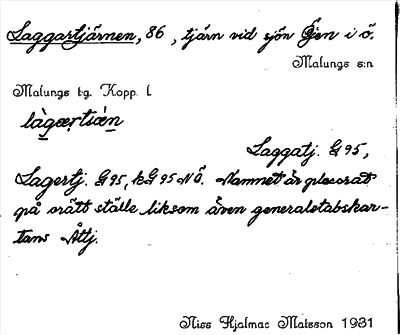 Laggartjärnen, 86, tjärn vid sjön Öjen i ö.
Malungs s:n
Malungs tg. Kopp. l.
làgœr̥tsiä́n
Laggatj. G95,
Lagertj. G95, kG95NÖ. Namnet är placerat
på orätt ställe liksom även generalstabskar-
tans Åttj.
Niss Hjalmar Matsson 1931